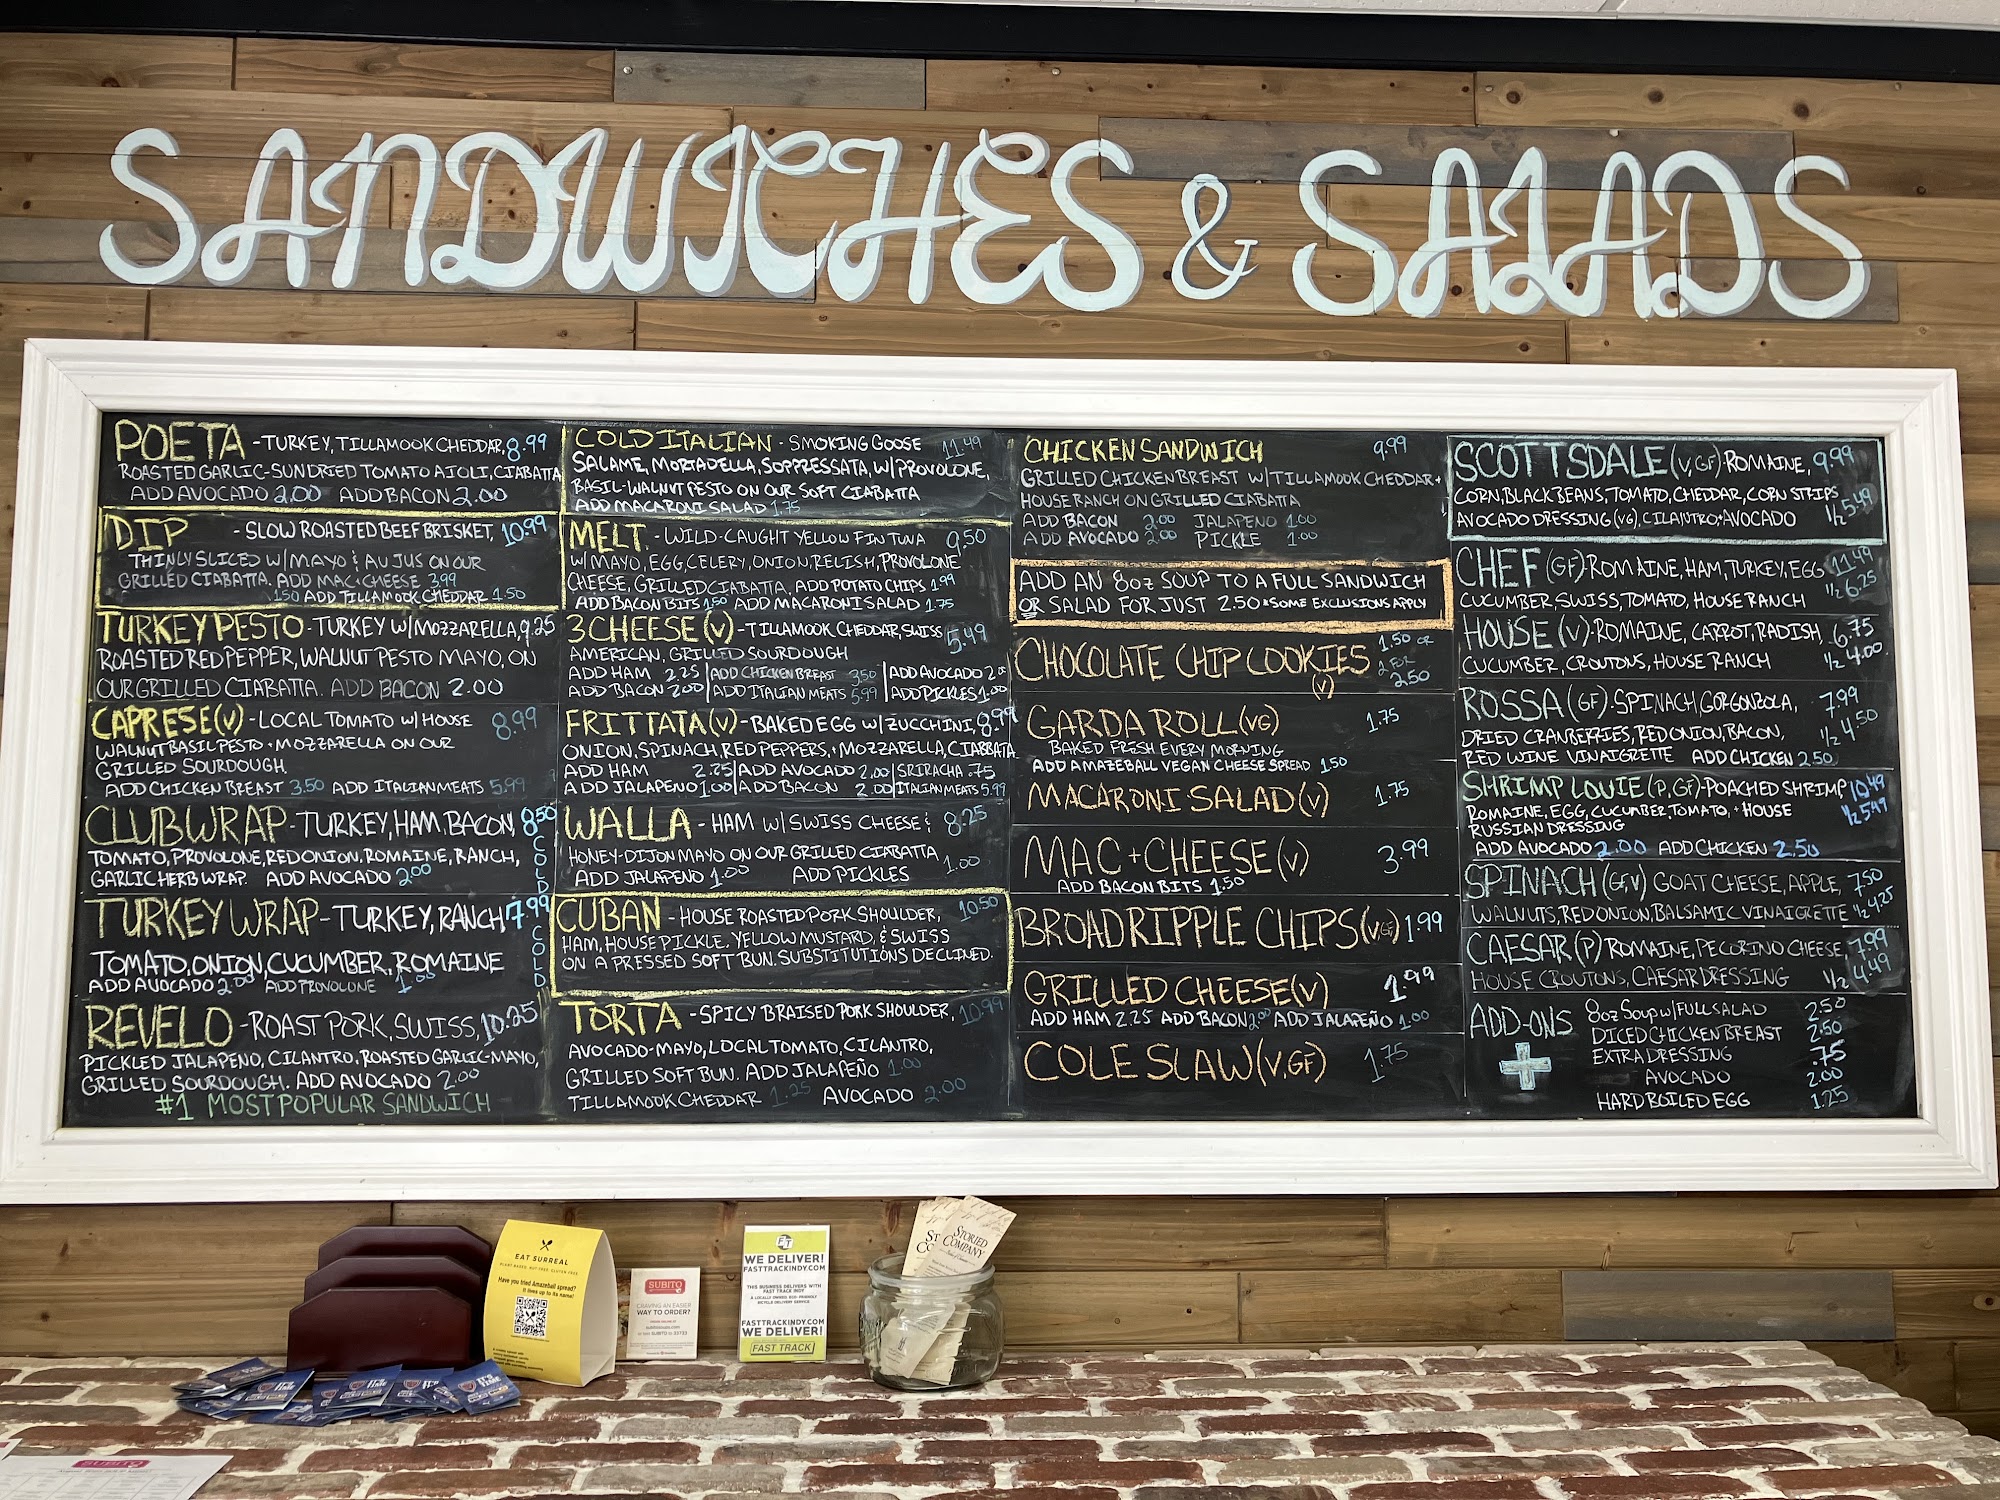 SANDWICHES & SALADS
POETA - TURKEY, TILLAMOOK CHEDDAR, 8.99
ROASTED GARLIC-SUNDRIED TOMATO AIOLI, CIABATTA
ADD AVOCADO 2.00 ADD BACON 2.00
DIP - SLOW ROASTED BEEF BRISKET, 10.99
THINLY SLICED W/MAYO & AU JUS ON OUR
GRILLED CIABATTA. ADD MAC+CHEESE 3.99
1.50 ADD TILLAMOOK CHEDDAR 1.50
TURKEY PESTO - TURKEY W/MOZZARELLA, 9.25
ROASTED RED PEPPER, WALNUT PESTO MAYO, ON
OUR GRILLED CIABATTA. ADD BACON 2.00
CAPRESE (V) - LOCAL TOMATO W/ HOUSE 8.99
WALNUT BASIL PESTO + MOZZARELLA ON OUR
GRILLED SOURDOUGH.
ADD CHICKEN BREAST 3.50 ADD ITALIAN MEATS 5.99
CLUB WRAP - TURKEY, HAM, BACON, 8.50
TOMATO, PROVOLONE, RED ONION, ROMAINE, RANCH,
GARLIC HERB WRAP. ADD AVOCADO 2.00
COLD
TURKEY WRAP - TURKEY, RANCH 7.99
TOMATO, ONION, CUCUMBER, ROMAINE
ADD AVOCADO 2.00 ADD PROVOLONE 1.00
COLD
REVELO - ROAST PORK, SWISS, 10.25
PICKLED JALAPEÑO, CILANTRO, ROASTED GARLIC-MAYO,
GRILLED SOURDOUGH. ADD AVOCADO 2.00
#1 MOST POPULAR SANDWICH
COLD ITALIAN - SMOKING GOOSE 11.49
SALAME, MORTADELLA, SOPPRESSATA, W/PROVOLONE,
BASIL-WALNUT PESTO ON OUR SOFT CIABATTA
ADD MACARONI SALAD 1.75
MELT - WILD-CAUGHT YELLOW FIN TUNA 9.50
W/MAYO, EGG, CELERY, ONION, RELISH, PROVOLONE
CHEESE, GRILLED CIABATTA, ADD POTATO CHIPS 1.99
ADD BACON BITS 1.50 ADD MACARONI SALAD 1.75
3 CHEESE (V) - TILLAMOOK CHEDDAR, SWISS 5.49
AMERICAN, GRILLED SOURDOUGH
ADD HAM 2.25 | ADD CHICKEN BREAST 3.50 | ADD AVOCADO 2.00
ADD BACON 2.00 | ADD ITALIAN MEATS 5.99 | ADD PICKLES 1.00
FRITTATA (V) - BAKED EGG W/ZUCCHINI, 8.99
ONION, SPINACH, RED PEPPERS, + MOZZARELLA, CIABATTA
ADD HAM 2.25 | ADD AVOCADO 2.00 | SRIRACHA .75
ADD JALAPENO 1.00 | ADD BACON 2.00 | ITALIAN MEATS 5.99
WALLA - HAM W/SWISS CHEESE & 8.25
HONEY-DIJON MAYO ON OUR GRILLED CIABATTA
ADD JALAPEÑO 1.00 ADD PICKLES 1.00
CUBAN - HOUSE ROASTED PORK SHOULDER, 10.50
HAM, HOUSE PICKLE, YELLOW MUSTARD, & SWISS
ON A PRESSED SOFT BUN. SUBSTITUTIONS DECLINED.
TORTA - SPICY BRAISED PORK SHOULDER, 10.99
AVOCADO-MAYO, LOCAL TOMATO, CILANTRO,
GRILLED SOFT BUN. ADD JALAPEÑO 1.00
TILLAMOOK CHEDDAR 1.25 AVOCADO 2.00
CHICKEN SANDWICH 9.99
GRILLED CHICKEN BREAST W/TILLAMOOK CHEDDAR +
HOUSE RANCH ON GRILLED CIABATTA
ADD BACON 2.00 JALAPENO 1.00
ADD AVOCADO 2.00 PICKLE 1.00
ADD AN 8oz SOUP TO A FULL SANDWICH
OR SALAD FOR JUST 2.50 *SOME EXCLUSIONS APPLY
CHOCOLATE CHIP COOKIES (V) 1.50 OR
2 FOR
2.50
GARDA ROLL (VG) 1.75
BAKED FRESH EVERY MORNING
ADD AMAZEBALL VEGAN CHEESE SPREAD 1.50
MACARONI SALAD (V) 1.75
MAC+CHEESE (V) 3.99
ADD BACON BITS 1.50
BROADRIPPLE CHIPS (V,GF) 1.99
GRILLED CHEESE (V) 1.99
ADD HAM 2.25 ADD BACON 2.00 ADD JALAPEÑO 1.00
COLE SLAW (V, GF) 1.75
SCOTTSDALE (V, GF) - ROMAINE, 9.99
CORN, BLACK BEANS, TOMATO, CHEDDAR, CORN STRIPS
AVOCADO DRESSING (VG), CILANTRO + AVOCADO 1/2 5.49
CHEF (GF) - ROMAINE, HAM, TURKEY, EGG 11.49
CUCUMBER, SWISS, TOMATO, HOUSE RANCH 1/2 6.25
HOUSE (V) - ROMAINE, CARROT, RADISH, 6.75
CUCUMBER, CROUTONS, HOUSE RANCH 1/2 4.00
ROSSA (GF) - SPINACH, GORGONZOLA, 7.99
DRIED CRANBERRIES, RED ONION, BACON, 1/2 4.50
RED WINE VINAIGRETTE ADD CHICKEN 2.50
SHRIMP LOUIE (P, GF) - POACHED SHRIMP 10.49
ROMAINE, EGG, CUCUMBER, TOMATO, + HOUSE 1/2 5.49
RUSSIAN DRESSING
ADD AVOCADO 2.00 ADD CHICKEN 2.50
SPINACH (GF, V) GOAT CHEESE, APPLE, 7.50
WALNUTS, RED ONION, BALSAMIC VINAIGRETTE 1/2 4.25
CAESAR (P) ROMAINE, PECORINO CHEESE, 7.99
HOUSE CROUTONS, CAESAR DRESSING 1/2 4.49
ADD-ONS
8oz SOUP W/FULL SALAD 2.50
DICED CHICKEN BREAST 2.50
EXTRA DRESSING .75
AVOCADO 2.00
HARD BOILED EGG 1.25
EAT SURREAL
PLANT-BASED. NUT-FREE. GLUTEN-FREE
Have you tried Amazeball spread?
It lives up to its name!
SUBITO
CRAVING AN EASIER
WAY TO ORDER?
FT
WE DELIVER!
FASTTRACKINDY.COM
THIS BUSINESS DELIVERS WITH
FAST TRACK INDY
A LOCALLY OWNED, ECO-FRIENDLY
BICYCLE DELIVERY SERVICE.
FASTTRACKINDY.COM
WE DELIVER!
FAST TRACK
STORIED
COMPANY
SUBITO